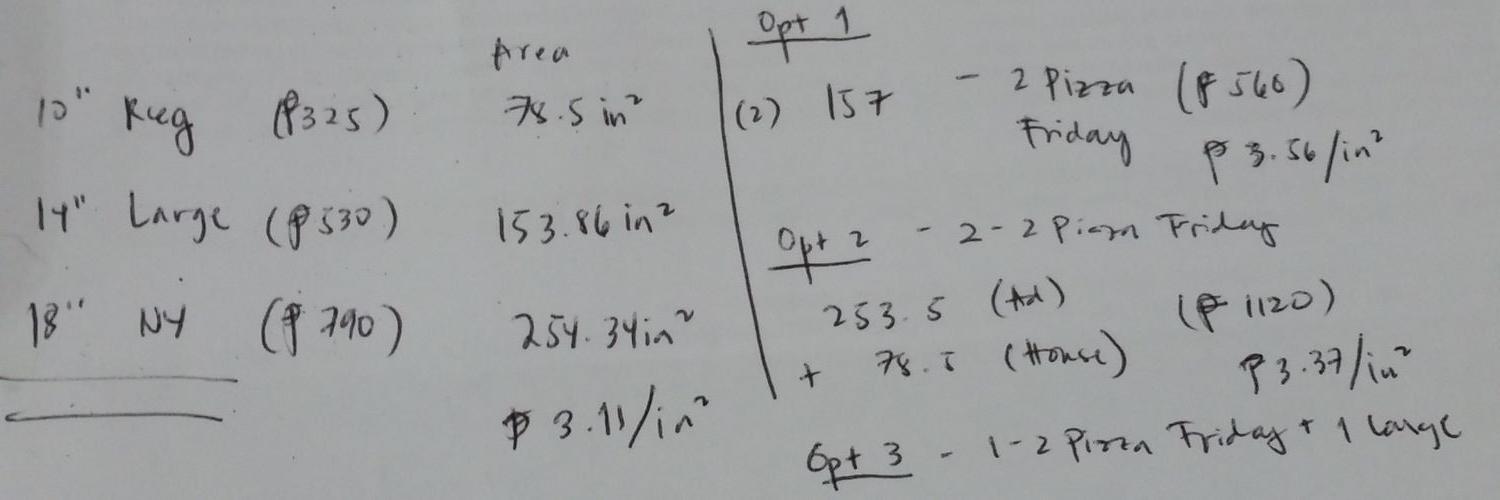 Area
10" Reg (₱325) 78.5 in²
14" Large (₱530) 153.86 in²
18" NY (₱790) 254.34 in²
₱ 3.11/in²
Opt 1
(2) 157 - 2 Pizza (₱560)
Friday ₱ 3.56/in²
Opt 2 - 2-2 Pizza Friday
253.5 (Ad) (₱ 1120)
+ 78.5 (House) ₱3.37/in²
Opt 3 - 1-2 Pizza Friday + 1 Large